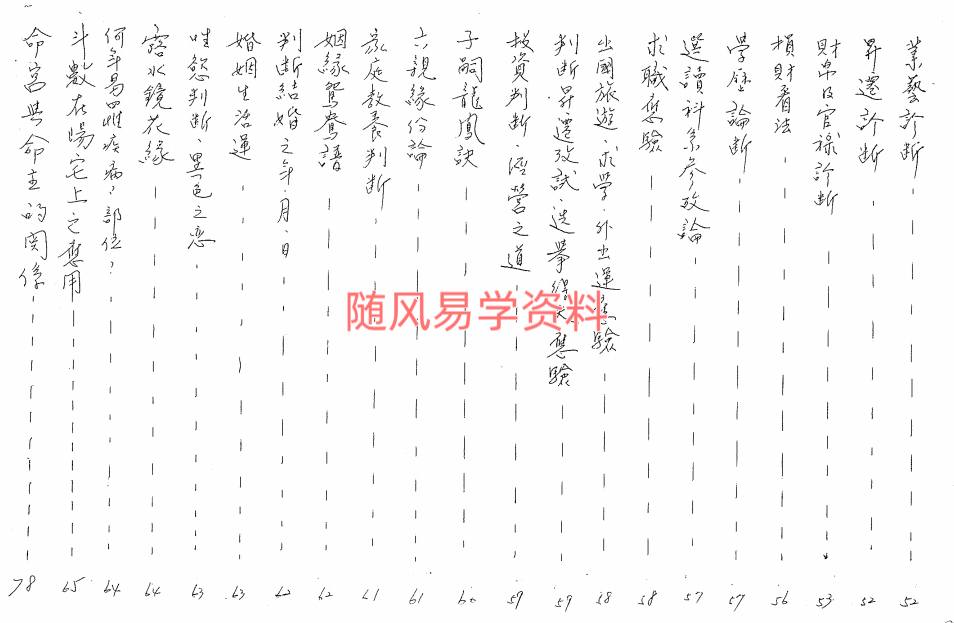 業藝診斷 52
昇遷診斷 52
財帛及官祿診斷 53
損財看法 56
學歷論斷 57
選讀科系參攷論 57
求職應驗 58
出國旅遊、求學、外出運應驗 58
判斷昇遷攷試、选舉得失應驗 59
投資判斷、經營之道 59
子嗣龍鳳訣 60
六親緣份論 61
家庭教養判斷 61
姻緣鴛鴦譜 62
判断結婚之年、月、日 62
婚姻生活運 63
性慾判斷、異色之恋 63
露水鏡花緣 64
何年易罹疾病，部位？ 64
斗數在陽宅上之應用 65
命宮與命主的関係 78
随风易学资料